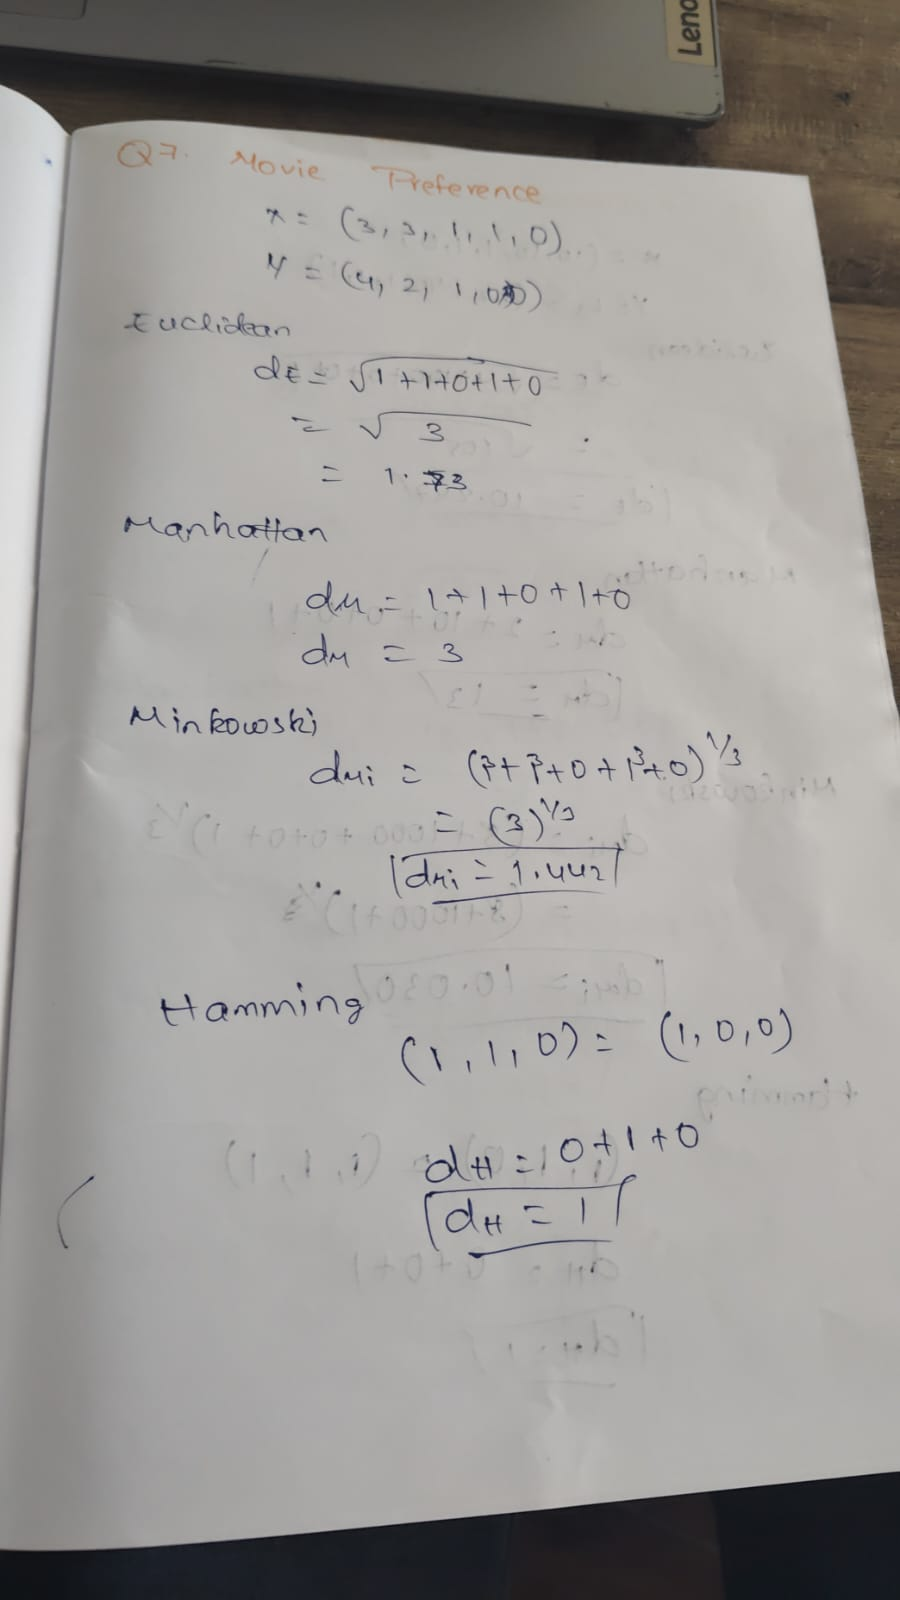 Leno
Q7. Movie Preference
x = (3, 3, 1, 1, 0)
y = (4, 2, 1, 0, 0)
Euclidean
dE = √1+1+0+1+0
= √3
= 1.73
Manhattan
dM = 1+1+0+1+0
dM = 3
Minkowski
dMi = (1³+1³+0+1³+0)^1/3
= (3)^1/3
dMi = 1.442
Hamming
(1, 1, 0) = (1, 0, 0)
dH = 0+1+0
dH = 1